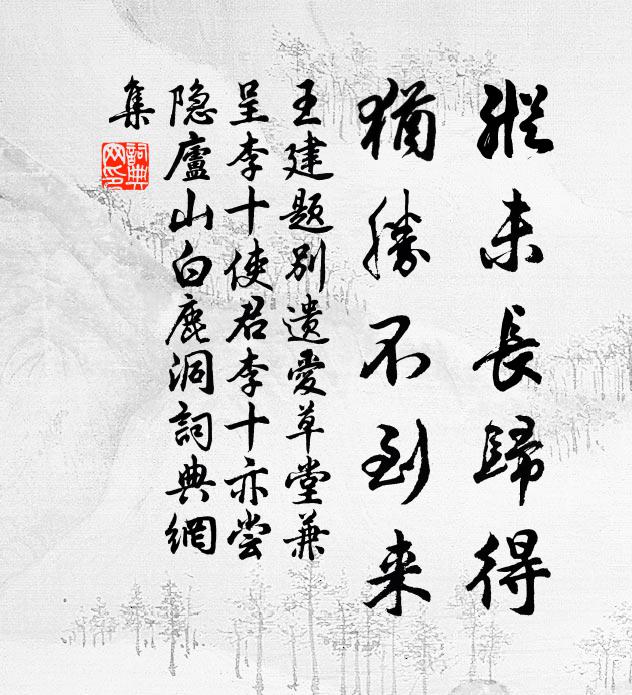 縱未長歸得
猶勝不到来
王建题别遺愛草堂兼
呈李十使君李十亦嘗
隐廬山白鹿洞詞典網
集
詞典
网印